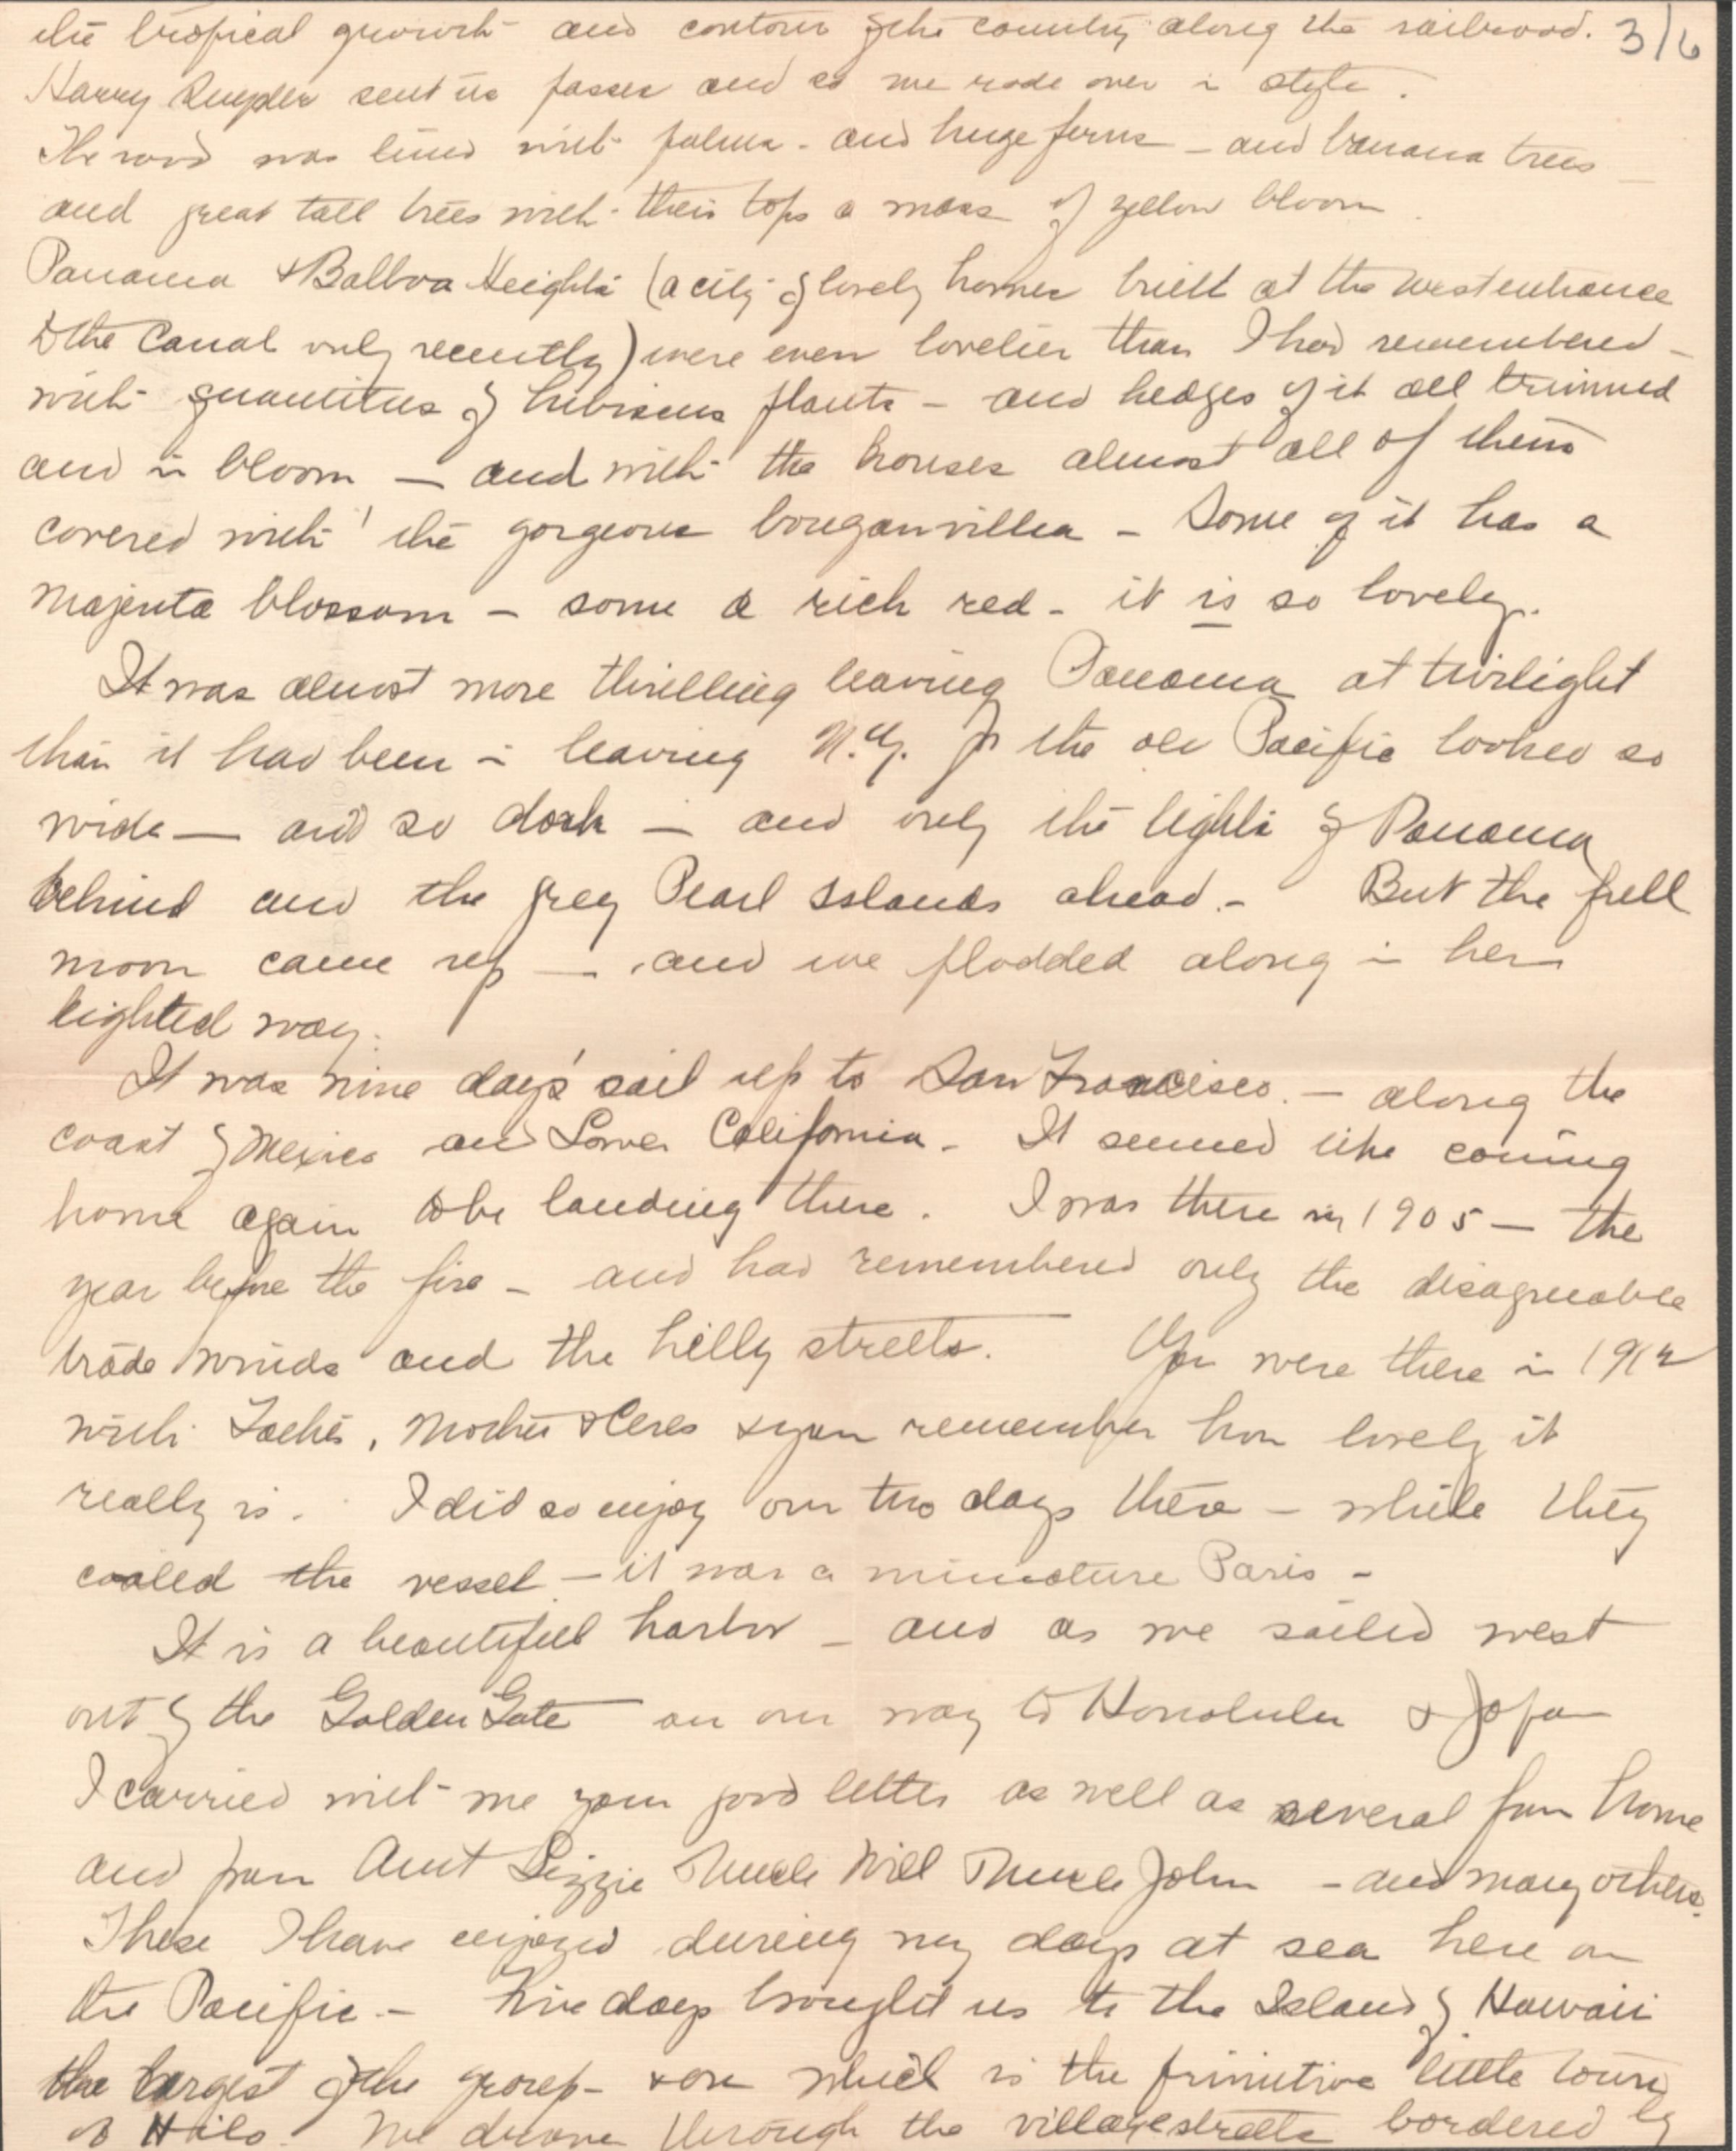 the tropical growth and contour of the country along the railroad. 3/6
Harry sent us passes and so we rode over in style.
The road was lined with palms - and huge ferns - and banana trees -
and great tall trees with their tops a mass of yellow bloom.
Panama & Balboa Heights (a city of lovely homes built at the west entrance
to the Canal only recently) were even lovelier than I had remembered -
with quantities of hibiscus plants - and hedges of it all trimmed
and in bloom - and with the houses almost all of them
covered with the gorgeous bouganvillea - Some of it has a
majenta blossom - some a rich red - it is so lovely.
It was almost more thrilling leaving Panama at twilight
than it had been in leaving N.Y. for the old Pacific looked so
wide - and so dark - and only the lights of Panama
behind and the grey Pearl Islands ahead. - But the full
moon came up - and we plodded along in her
lighted way.
It was nine days' sail up to San Francisco. - along the
coast of Mexico and Lower California - It seemed like coming
home again to be landing there. I was there in 1905 - the
year before the fire - and had remembered only the disagreeable
trade winds and the hilly streets. You were there in 1912
with , Mother & Ceres & you remember how lovely it
really is. I did so enjoy our two days there - while they
coaled the vessel - it was a miniature Paris -
It is a beautiful harbor - and as we sailed west
out of the Golden Gate on our way to Honolulu & Japan
I carried with me your good letter as well as several from home
and from Aunt Lizzie Uncle Will Uncle John - and many others.
These I have enjoyed during my days at sea here on
the Pacific. - Five days brought us to the Island of Hawaii
the largest of the group - & on which is the primitive little town
of Hilo. We drove through the village streets bordered by